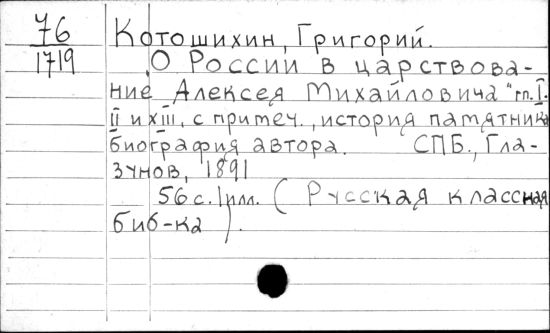 76
1719
Котошихин, Григорий.
О России в царствова-
ние Алексея Михайловича "гл. I.
II и XIII, с примеч., история памятника
биография автора. СПБ., Гла-
зунов, 1891
56 с. 1 илл. (Русская классная
биб-ка).